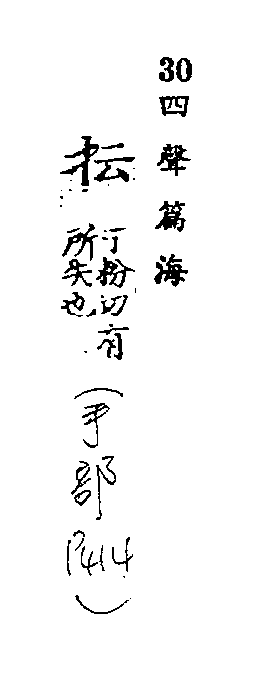 30 四聲篇海
抎
于粉切有
所失也
(手部 P414)